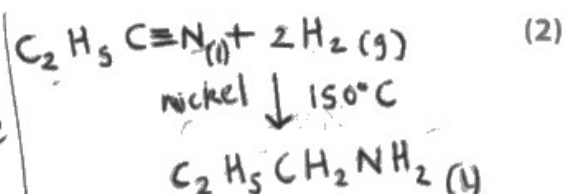 C₂H₅C≡N(l) + 2H₂(g) (2)
nickel ↓ 150°C
C₂H₅CH₂NH₂(l)